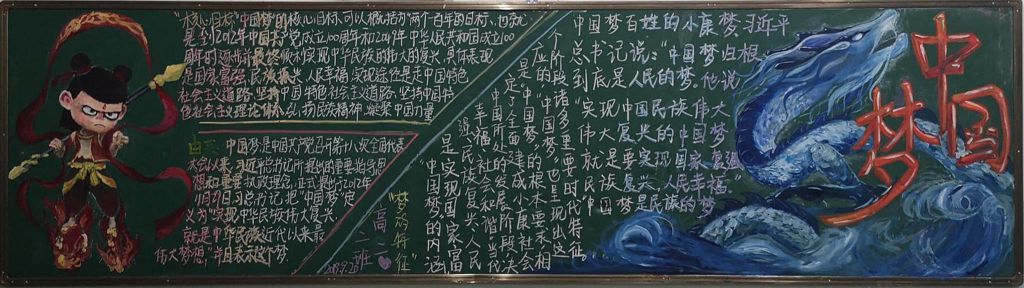 "核心目标"中国梦的核心目标,可以概括为"两个百年的目标,也就
是:到2012年中国共产党成立100周年和2049年中华人民共和国成立100
周年时,逐步并最终顺利实现中华民族的伟大的复兴,具体表现
是国家富强,民族振兴,人民幸福,实现途径是走中国特色
社会主义道路,坚持中国特色社会主义道路,坚持中国特
色社会主义理论体系,弘扬民族精神,凝聚中国力量
中国梦是中国共产党召开第十八次全国代表
大会以来,习近平总书记所提出的重要指导思
想和重要执政理念,正式提出于2012年
11月29日,习总书记把"中国梦"定
义为"实现中华民族伟大复兴,
就是中华民族近代以来最
伟大梦想,"并且表示这个梦
"梦的特征"
高二
班
"中国梦"的内涵
是实现国家富
强、民族复兴、人民
幸福、社会和谐,当代
中国所处的发展阶段,决
定了全面建成小康社会
是"中国梦"的根本要求,相
应的,"中国梦"也呈现出这
个阶段诸多重要时代特征。
中国梦百姓的小康梦习近平
总书记说:"中国梦归根
到底是人民的梦。"他说
"实现中国民族伟大
伟大复兴的中国梦
就是要实现国家富强
民族复兴,人民幸福"
"中国梦是民族的梦
中国
梦